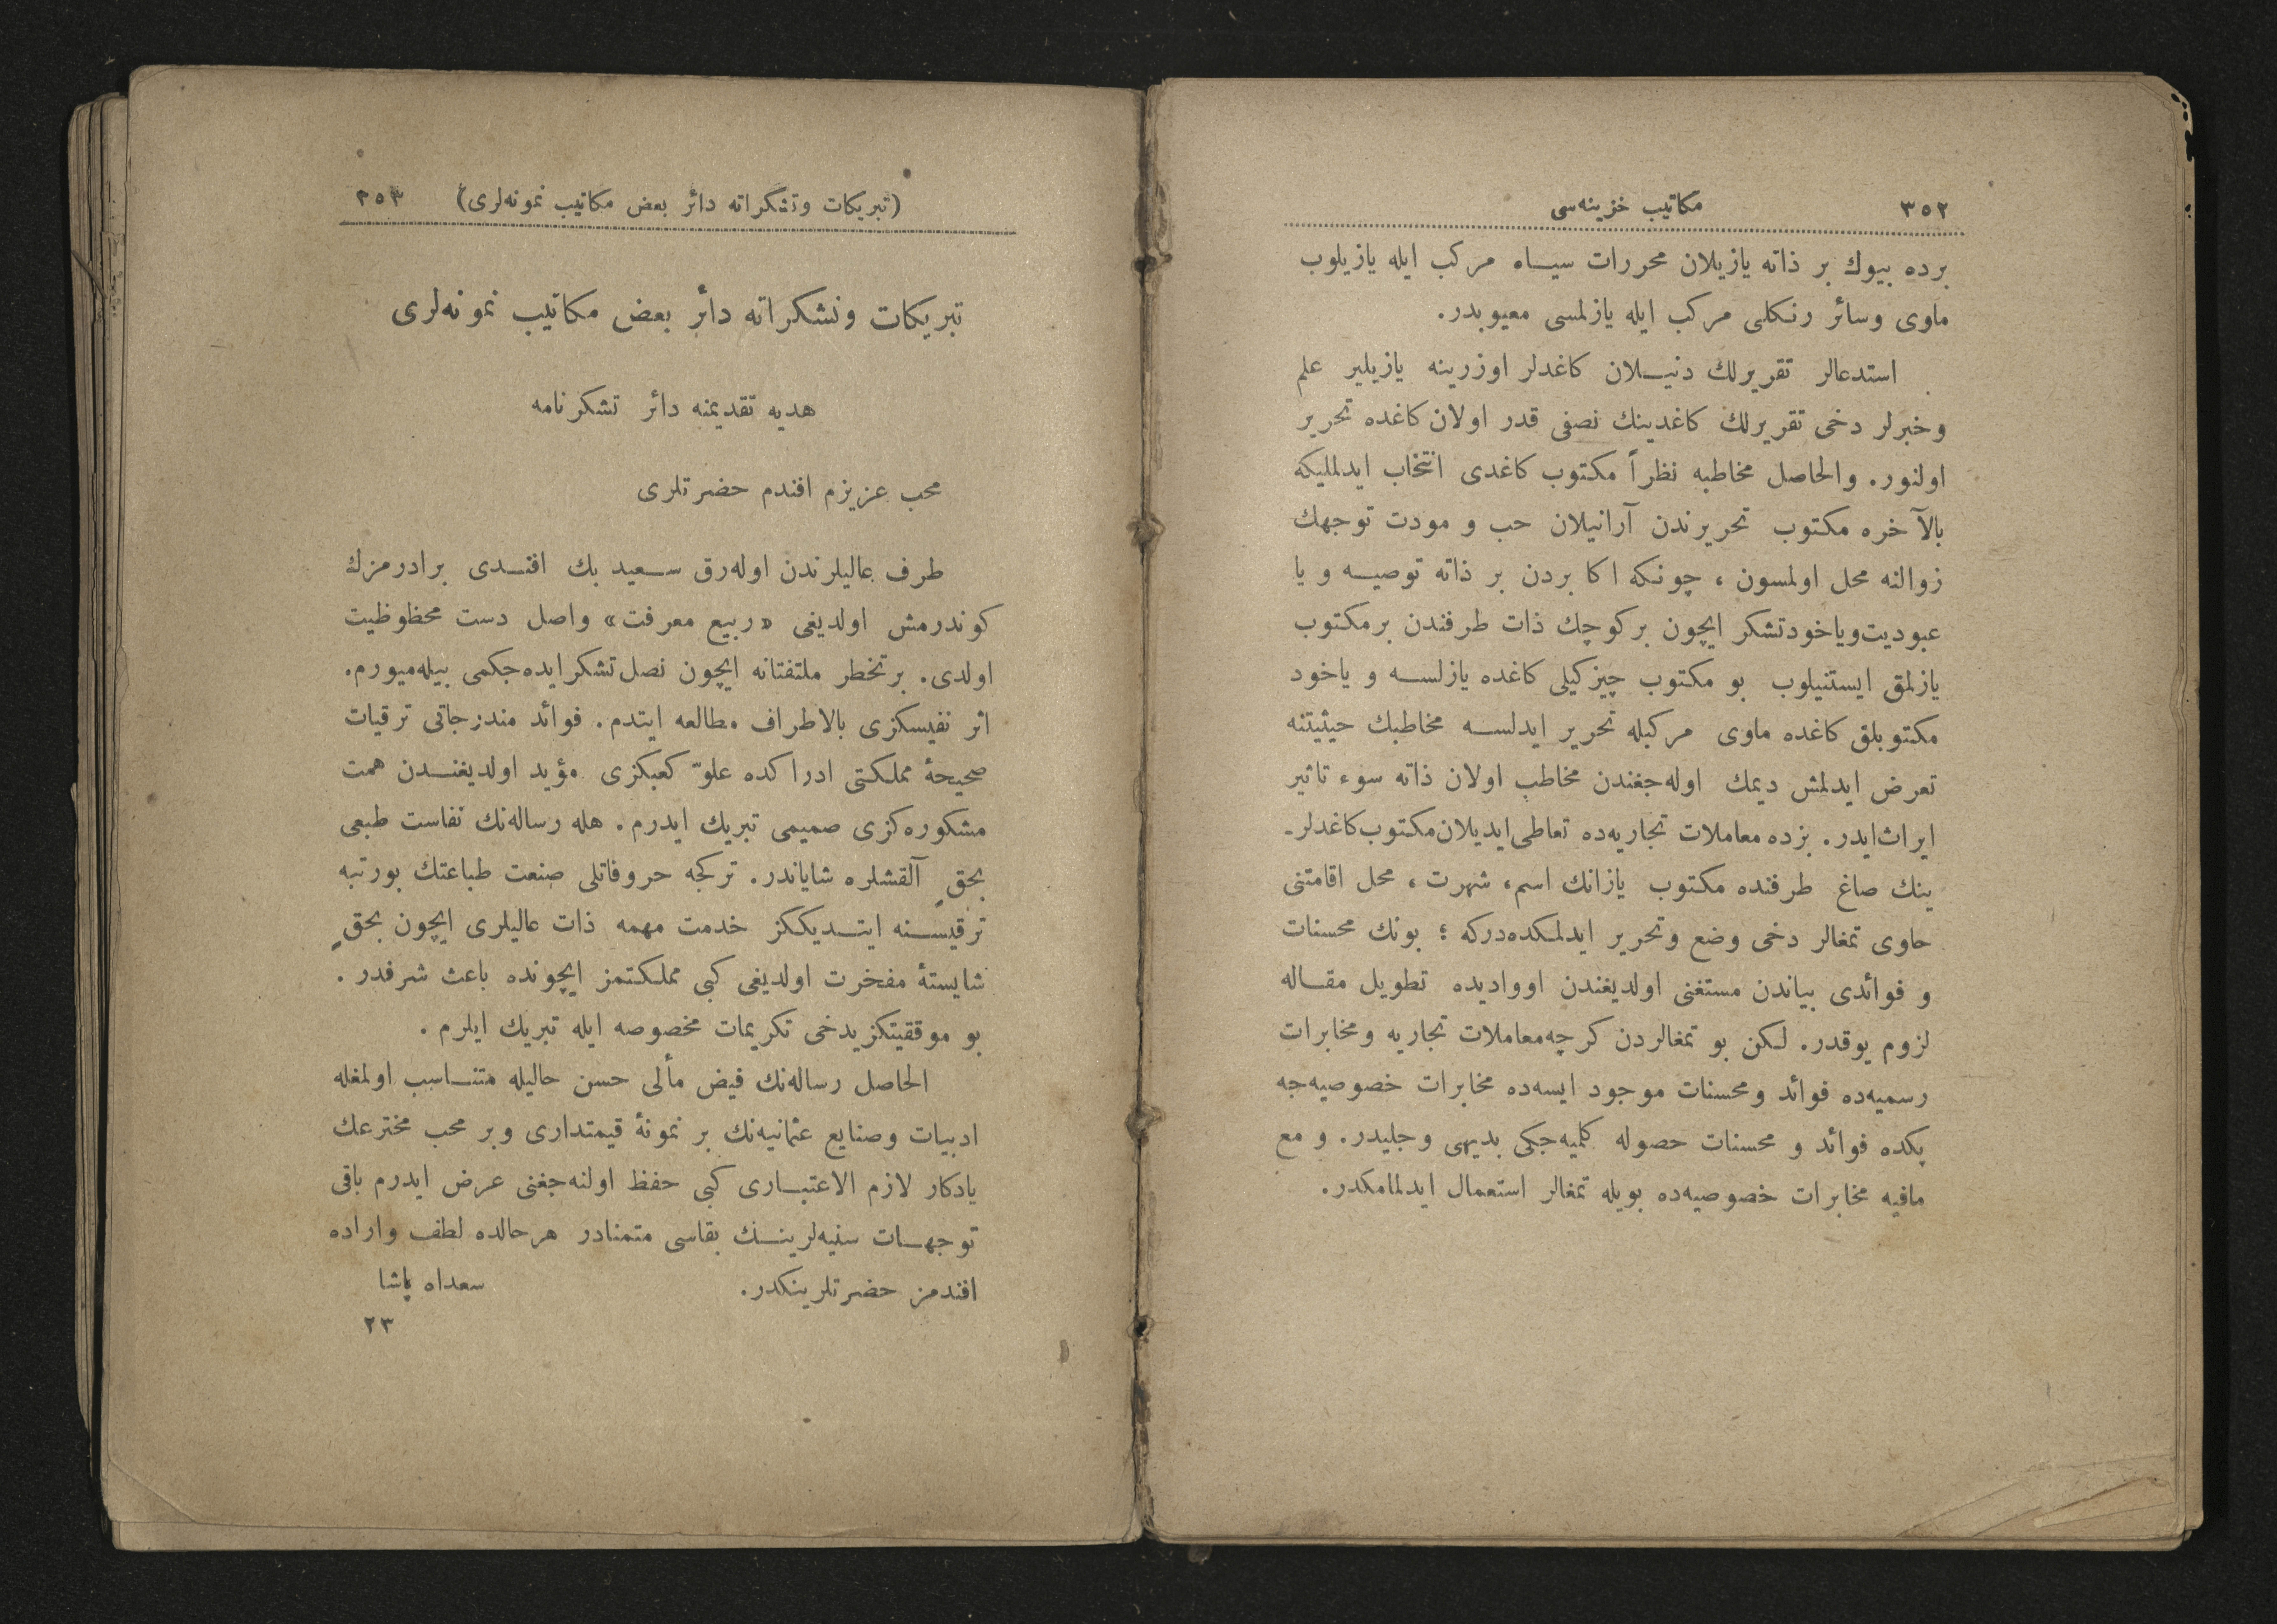 ٣٥٢ مكاتيب خزينه‌سى
برده بيوك بر ذاته يازيلان محررات سيـاه مركب ايله يازيلوب
ماوى وسائر رنكلى مركب ايله يازلمسى معيوبدر.
استدعالر تقريرلك دنيـلان كاغدلر اوزرينه يازيلير علم
وخبرلر دخى تقريرلك كاغدينك نصفى قدر اولان كاغده تحرير
اولنور. والحاصل مخاطبه نظراً مكتوب كاغدى انتخاب ايدلمليكه
بالآخره مكتوب تحريرندن آرانيلان حب و مودت توجهك
زوالنه محل اولمسون ، چونكه اكا بردن بر ذاته توصيـه و يا
عبوديت‌وياخودتشكر ايچون بركوچك ذات طرفندن برمكتوب
يازلمق ايستنيلوب بو مكتوب چيزكيلى كاغده يازلسـه و ياخود
مكتوبلق كاغده ماوى مركبله تحرير ايدلسـه مخاطبك حيثيتنه
تعرض ايدلمش ديمك اوله‌جغندن مخاطب اولان ذاته سوء تاثير
ايراث‌ايدر. بزده معاملات تجاريه‌ده تعاطى‌ايديلان‌مكتوب‌كاغدلر-
ينك صاغ طرفنده مكتوب يازانك اسم، شهرت ، محل اقامتنى
حاوى تمغالر دخى وضع وتحرير ايدلمكده‌دركه ؛ بونك محسنات
و فوائدى بياندن مستغنى اولديغندن اوواديده تطويل مقـاله
لزوم يوقدر. لكن بو تمغالردن كرچه‌معاملات تجاريه ومخابرات
رسميه‌ده فوائد ومحسنات موجود ايسه‌ده مخابرات خصوصيه‌جه
پكده فوائد و محسنات حصوله كلميه‌جكى بديهى وجليدر. و مع
مافيه مخابرات خصوصيه‌ده بويله تمغالر استعمال ايدلمامكدر.
(تبريكات وتشكراته دائر بعض مكاتيب نمونه‌لرى) ٣٥٣
تبريكات وتشكراته دائر بعض مكاتيب نمونه‌لرى
هديه تقديمنه دائر تشكرنامه
محب عزيزم افندم حضرتلرى
طرف عاليلرندن اوله‌رق سـعيد بك افنـدى برادرمزك
كوندرمش اولديغى «ربيع معرفت» واصل دست محظوظيت
اولدى. برتخطر ملتفتانه ايچون نصل‌تشكرايده‌جكمى بيله‌ميورم.
اثر نفيسكزى بالاطراف مطالعه ايتدم. فوائد مندرجاتى ترقيات
صحيحۀ مملكتى ادراكده علوّ كعبكزى مؤيد اولديغنـدن همت
مشكوره‌كزى صميمى تبريك ايدرم. هله رساله‌نك نفاست طبعى
بحقٍ آلقشلره شاياندر. تركجه حروفاتلى صنعت طباعتك بورتبه
ترقيسـنه ايتـديككز خدمت مهمه ذات عاليلرى ايچون بحقٍ
شايستۀ مفخرت اولديغى كبى مملكتمز ايچونده باعث شرفدر .
بو موفقيتكزيدخى تكريمات مخصوصه ايله تبريك ايلرم .
الحاصل رساله‌نك فيض مألى حسن حاليله متنـاسب اولمغله
ادبيات وصنايع عثمانيه‌نك بر نمونۀ قيمتدارى وبر محب مخترعك
يادكار لازم الاعتبـارى كبى حفظ اولنه‌جغنى عرض ايدرم باقى
توجهـات سنيه‌لرينـك بقاسى متمنادر هرحالده لطف واراده
افندمز حضرتلرينكدر. سعداه پاشا
٢٣